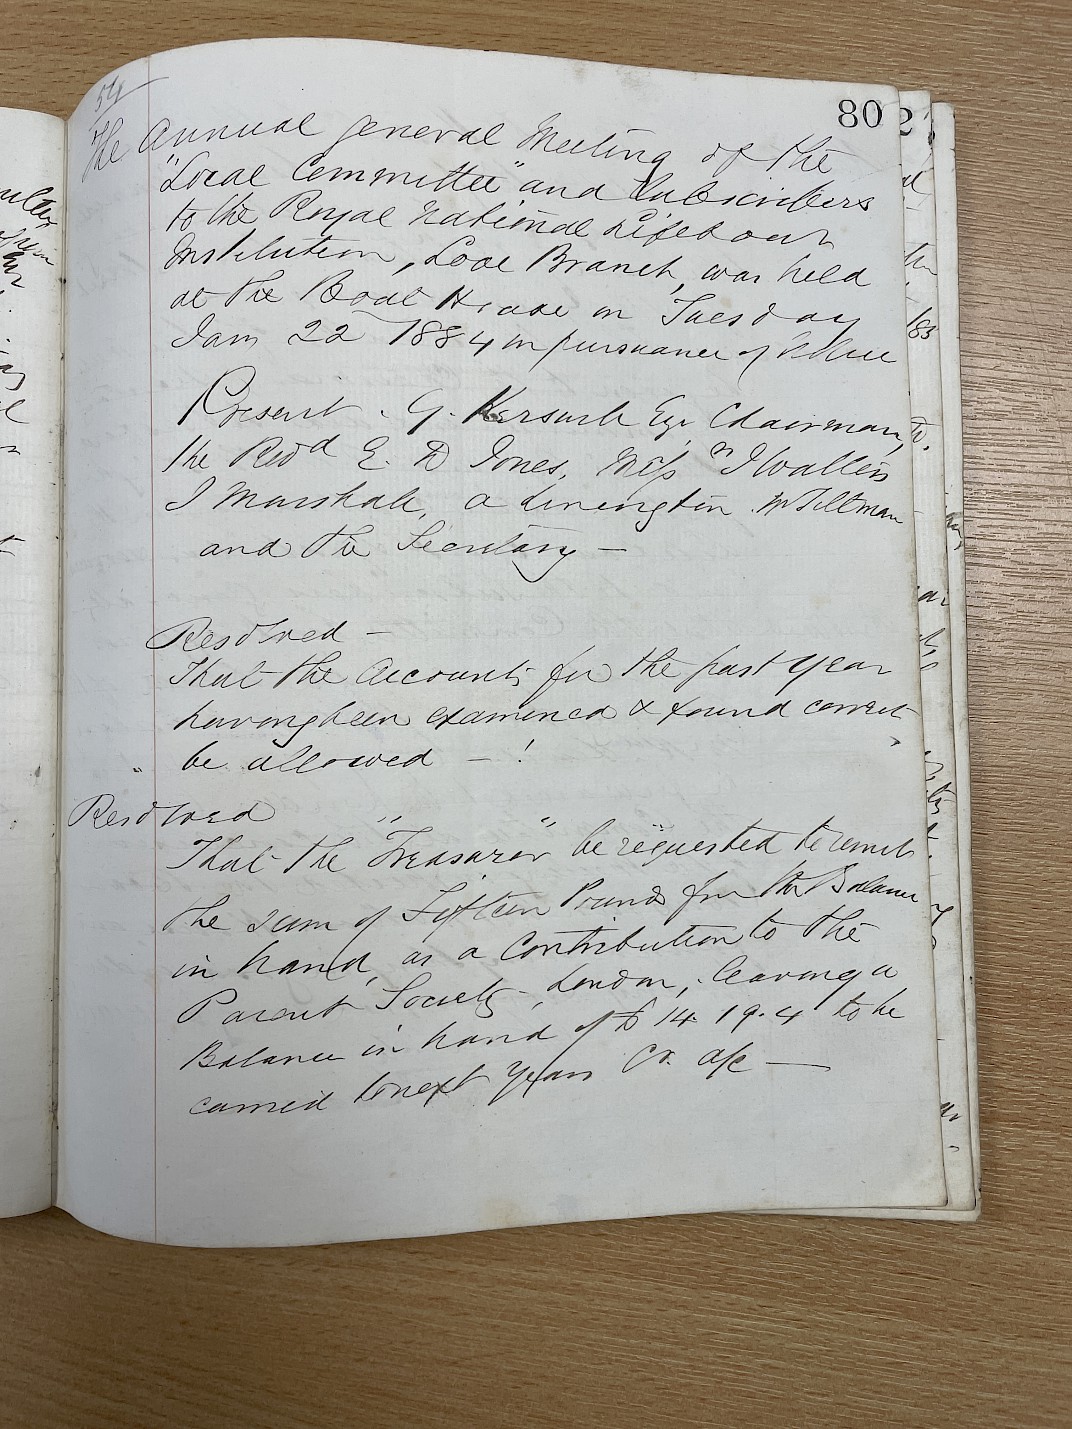 80
54
The Annual general Meeting of the
"Local Committee" and Subscribers
to the Royal National Lifeboat
Institution, Looe Branch, was held
at the Boat House on Tuesday
Jan 22 1884 in pursuance of Notice
Present. G. Kerswell Esqr Chairman,
the Revd E. D Jones, Mess rs J Wallis
J Marshall, a Linington. Mr Tillman
and the Secretary —
Resolved —
That the Accounts for the past year
having been examined & found correct
be allowed — !
Resolved
That the "Treasurer" be requested to remit
the sum of Fifteen Pounds from the Balance
in hand, as a Contribution to the
Parent Society - London, leaving a
Balance in hand of £ 14. 19. 4 to be
carried to next Years Cr. a/c —